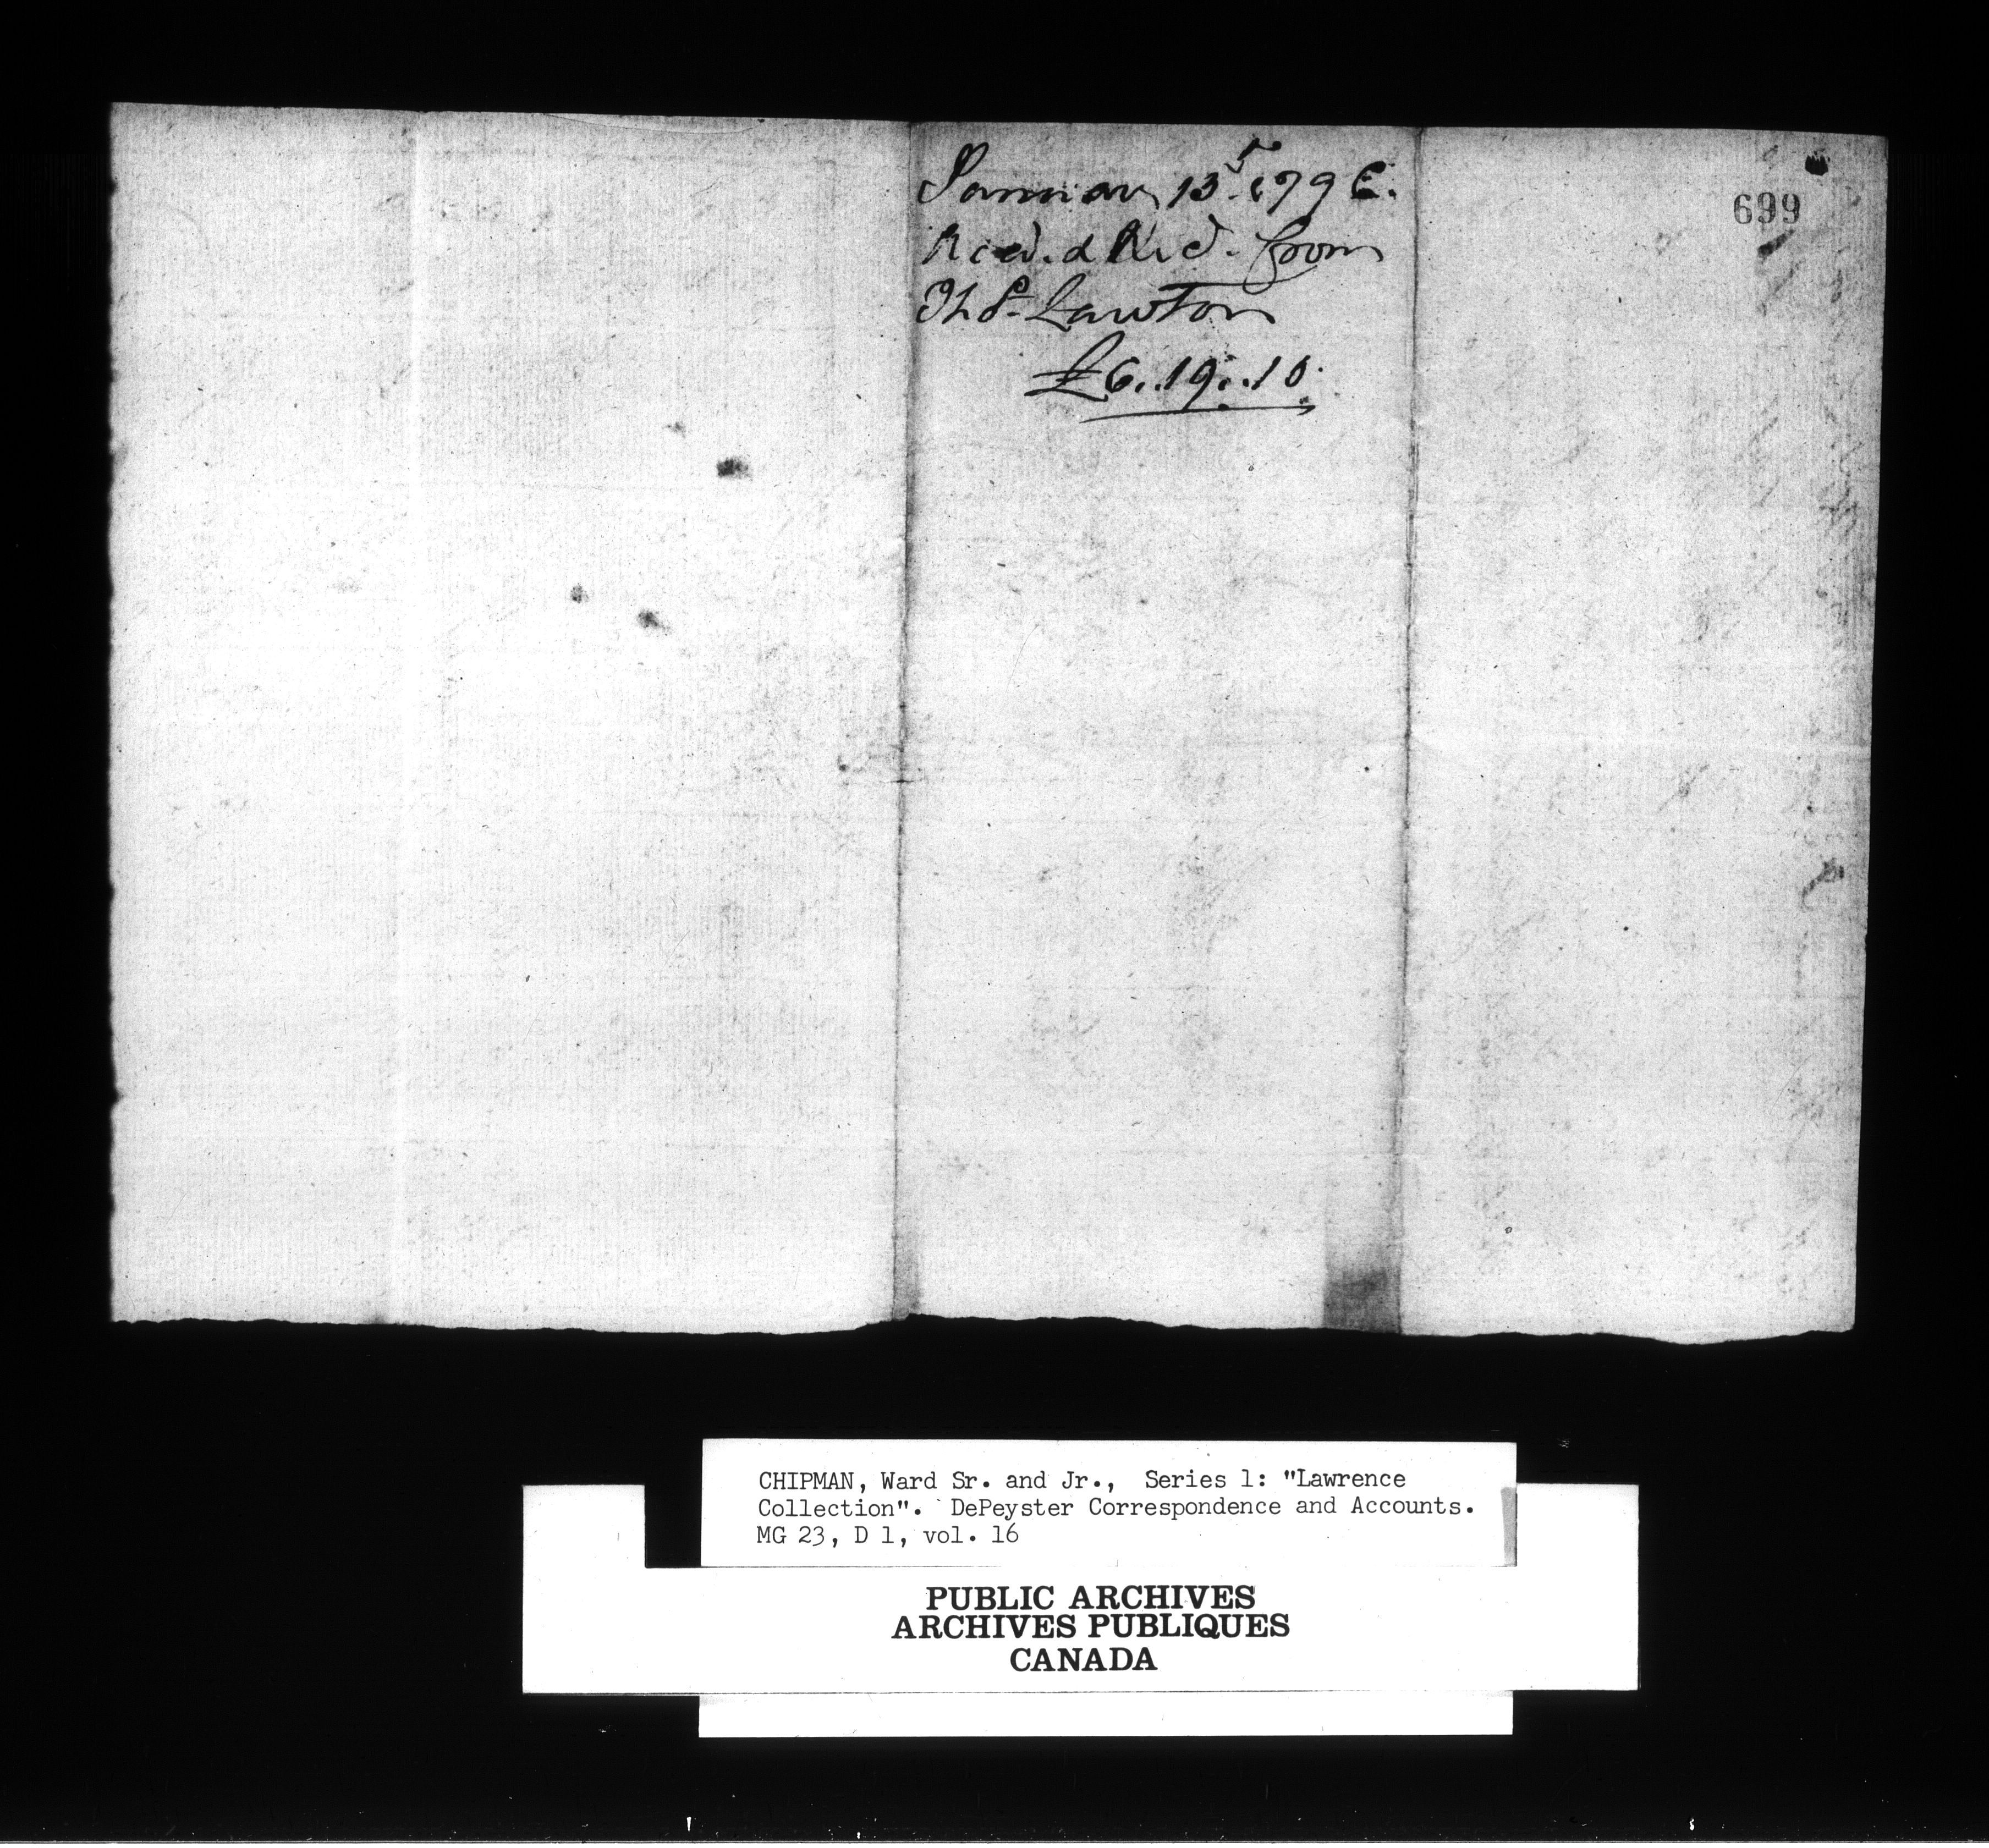 January 13. 1796.
Rced. & Recd. from
Thos. Lawton
£6..19..10.
699
CHIPMAN, Ward Sr. and Jr., Series 1: "Lawrence
Collection". DePeyster Correspondence and Accounts.
MG 23, D 1, vol. 16
PUBLIC ARCHIVES
ARCHIVES PUBLIQUES
CANADA